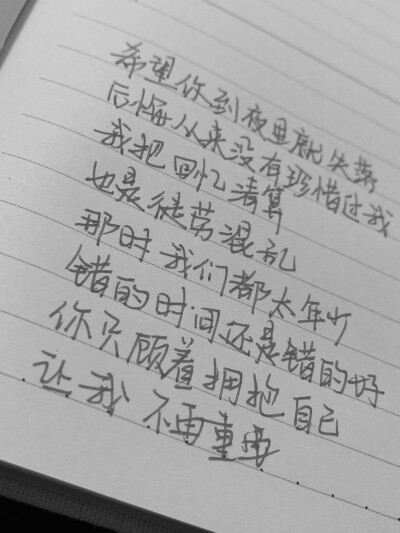 希望你到夜里就失落
后悔从来没有珍惜过我
我把回忆清算
也是徒劳混乱
那时我们都太年少
错的时间还是错的好
你只顾着拥抱自己
让我不再重要